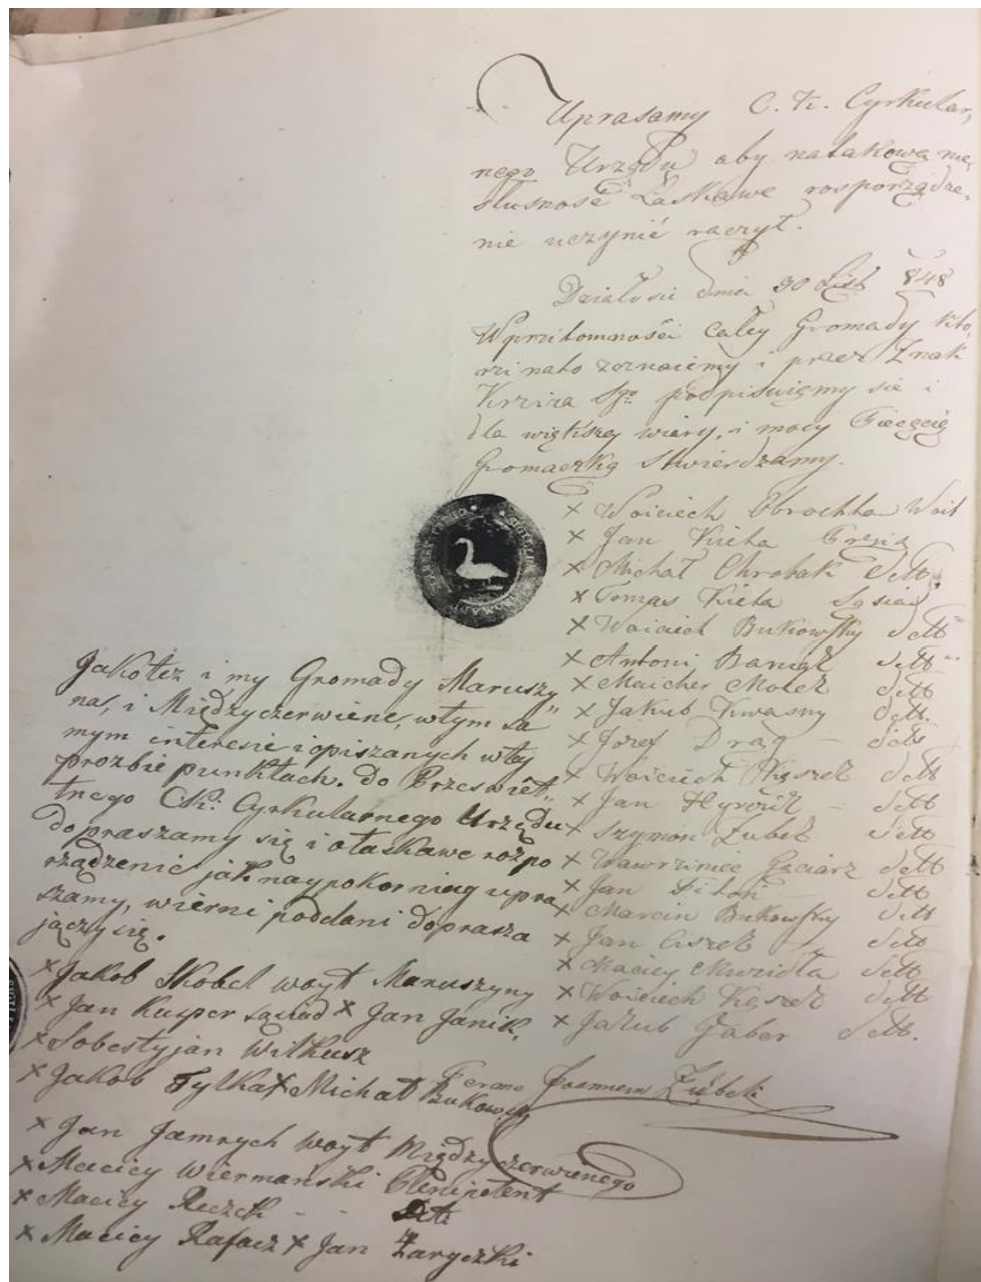 Uprasamy C. K. Cyrkular,
nego Urzędu aby natakową nie,
słusność Łaskawe rosporządze,
nie uczynić raczył.
Działosie dnia 30 List 848
Wprzitomności całey Gromady kto,
rzi nato zeznaiemy i przez Znak
Krziza Sgo podpisuięmy sie i
dla większey wiary, i mocy Pieczęcią
Gromaczką stwierdzamy.
× Woiciech Obrochta Woit
× Jan Kieta
× Michał Chrobak detto
× Tomas Kieta Sąsiad
× Woiciech Bukowsky detto
× Antoni detto
× Maicher detto
× Jakub Kwasny detto
× Jozef Drąg – detto
× Woiciech detto
× Jan – detto
× Szymon detto
× Wawrziniec detto
× Jan – detto
× Marcin Bukowsky detto
× Jan Ciszek detto
× Maciey Mwzidła detto
× Woiciech detto
× Jakub Gaber detto
Jakotez i my Gromady Maruszy„
na, i Międzyczerwiene, wtym sa
mym interesie i opiszanych wtey
prozbie punktach. do Przeswiet„
tnego CK: Cyrkularnego Urzędu
dopraszamy się i ołaskawe rozpo
rządzenie jak naypokorniey upra
szamy, wierni poddani doprasza
jączy się.
× Jakob Skobel woyt Maruszyny
× Jan Kasper sąsiad × Jan Janik,
× Sobestyjan Witkusz
× Jakob Tylka × Michał Bukowski
× Jan Jamrych woyt Międzyczerwienego
× Maciey Wiermanski Plenipotent
× Maciey Reczek - - Dtto
× Maciey Rafacz × Jan Zaryczki